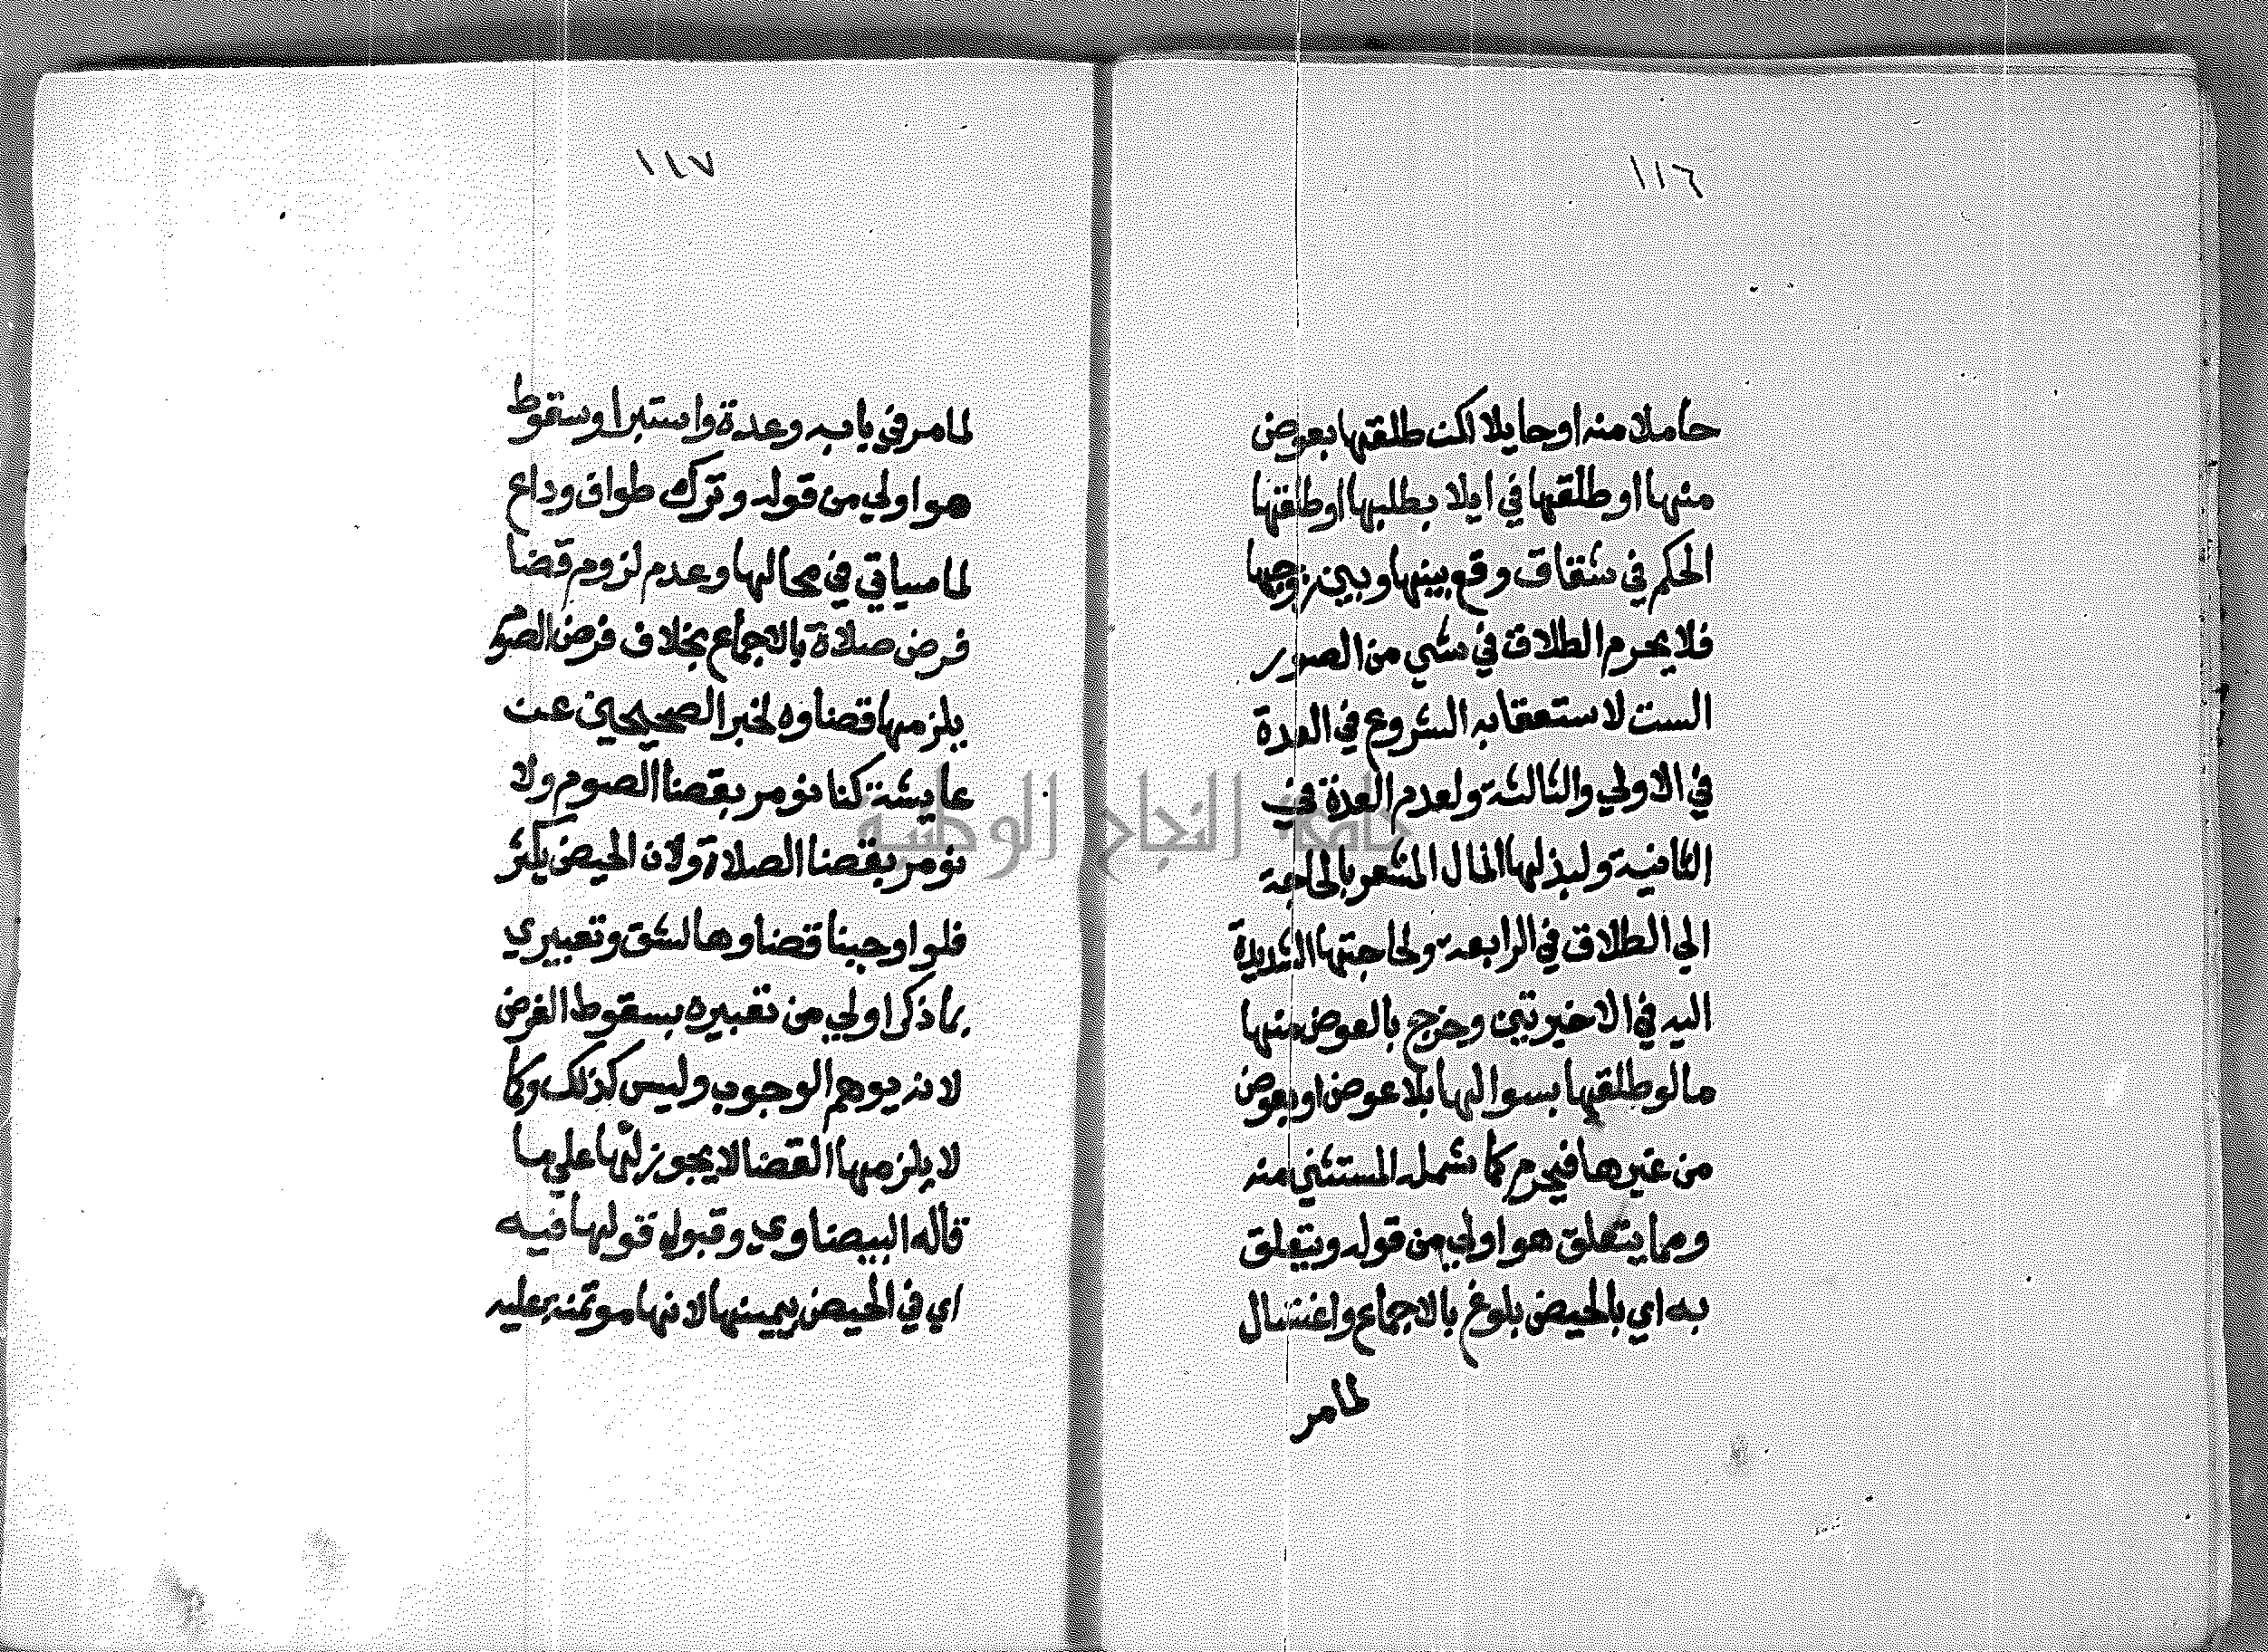 ١١٦
حاملا منه او حايلا لكن طلقتها بعوض
منها او طلقها في ايلا بطلبها او طلقتها
الحكم في شقاق وقع بينها وبين زوجها
فلا يحرم الطلاق في شي من الصور
الست لاستعقابه الشروع في العدة
في الاولي والثالثة ولعدم العدة في
الثانية ولبذلها المال المشعر بالحاجة
الي الطلاق في الرابعة ولحاجتها الشديدة
اليه في الاخيرتين وخرج بالعوض منها
مالو طلقها بسوالها بلا عوض او بعوض
من غيرها فيحرم كما شمله المستثني منه
ومما يتعلق هو اولي من قوله ويتعلق
به اي بالحيض بلوغ بالاجماع واغتسال
لمامر
١١٧
لمامر في بابه وعدة واستبرا وسقوط
هو اولي من قوله وترك طواف وداع
لما سياتي في محالها وعدم لزوم قضا
فرض صلاة بالاجماع بخلاف فرض الصوم
يلزمها قضاوه لخبر الصحيحين عن
عايشة كنا نومر بقضا الصوم ولا
نومر بقضا الصلاة ولان الحيض يكثر
فلو اوجبنا قضاوها لشق وتعبيري
بما ذكر اولي من تعبيره بسقوط الفرض
لانه يوهم الوجوب وليس كذلك وكما
لا يلزمها القضا لا يجوز لها علي ما
قاله البيضاوي وقبول قولها فيه
اي في الحيض بيمينها لانها موتمنة عليه
جامعة النجاح الوطنية